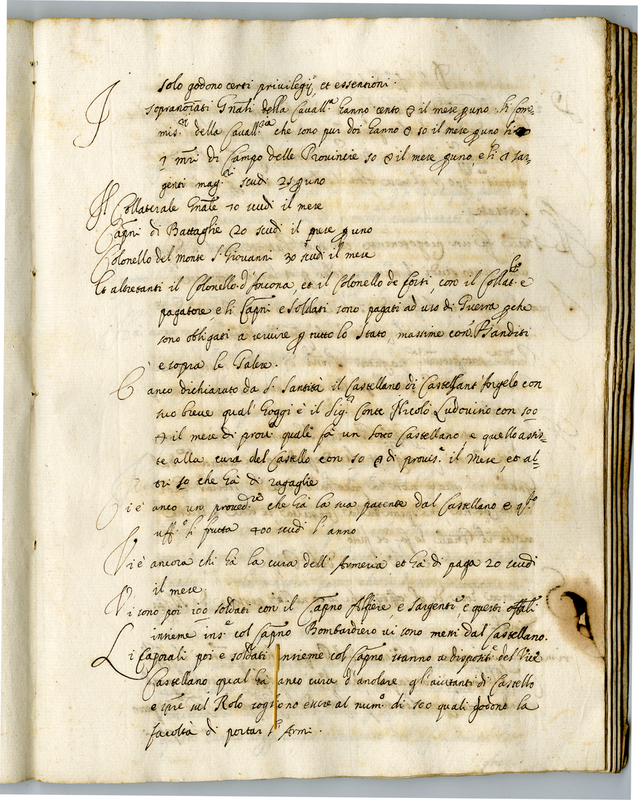 solo godono certi privilegij et essentioni.
I sopranoiati Gnāli della Cavall.ª hanno cento ∇ il mese p uno. li Com-
mis.rj della Cavall.ria che sono pur doi hanno ∇ 50 il mese p uno li
7 mri di Campo delle Provincie 50 ∇ il mese p uno, e li sar-
genti mag.ri scudi 25 p uno
Il Collaterale Gnāle 70 scudi il mese
Capnī di Battaglie 20 scudi il mese p uno
Colonello del monte s. Giovanni 30 scudi il mese
Et altretanti il Colonello d'Ancona, et il Colonello de Corsi con il Collat.le e
pagatore e li Capnī e soldati sono pagati ad uso di Guerra p che
sono obligati a servire p tutto lo stato, massime con Banditi
e sopra le Galre.
È anco dichiarato da S. Santità il Castellano di Castel sant'Angelo con
suo breve qual hoggi è il Sig.r Conte Nicolò Ludovisio con 500
∇ il mese di provis.e quale fà un sotto Castellano, e quello assis-
te alla cura del Castello con 50 ∇ di provis.e il Mese, et al-
tri 50 che hà di ragaglie
Vi è anco un proved.re che hà la sua patente dal Castellano e
uff.o li frutta 400 scudi l'anno
Vi è ancora chi hà la cura dell'Armeria et hà di paga 20 scudi
il mese
Vi sono poi 100 soldati con il Capno Alfiere e sargenti, e questi offāli
insieme col Capno Bombardiero vi sono messi dal Castellano.
Li Caporali poi e soldati insieme col Capno stanno a disposit.e del Vice
Castellano qual hà anco cura d'arolare gli aiutanti di Castello
e sul Rolo sogliono essere al num.o di 500 quali godono la
facoltà di portar l'Armi.